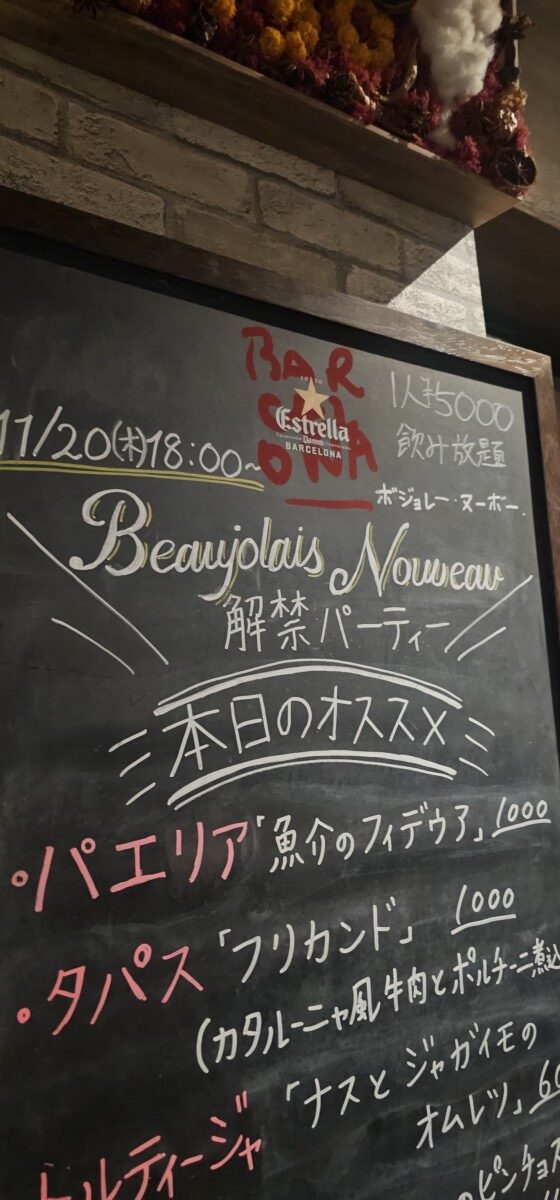 BAR
CEL
ONA
1876
Estrella
Damm
BARCELONA
1人¥5000
飲み放題
11/20(木)18:00~
ボジョレー・ヌーボー
Beaujolais Nouveau
解禁パーティー
本日のオススメ
・パエリア「魚介のフィデウア」1000
・タパス「フリカンド」1000
(カタルーニャ風牛肉とポルチーニ煮込
「ナスとジャガイモの
オムレツ」
トルティージャ
ピンチョス